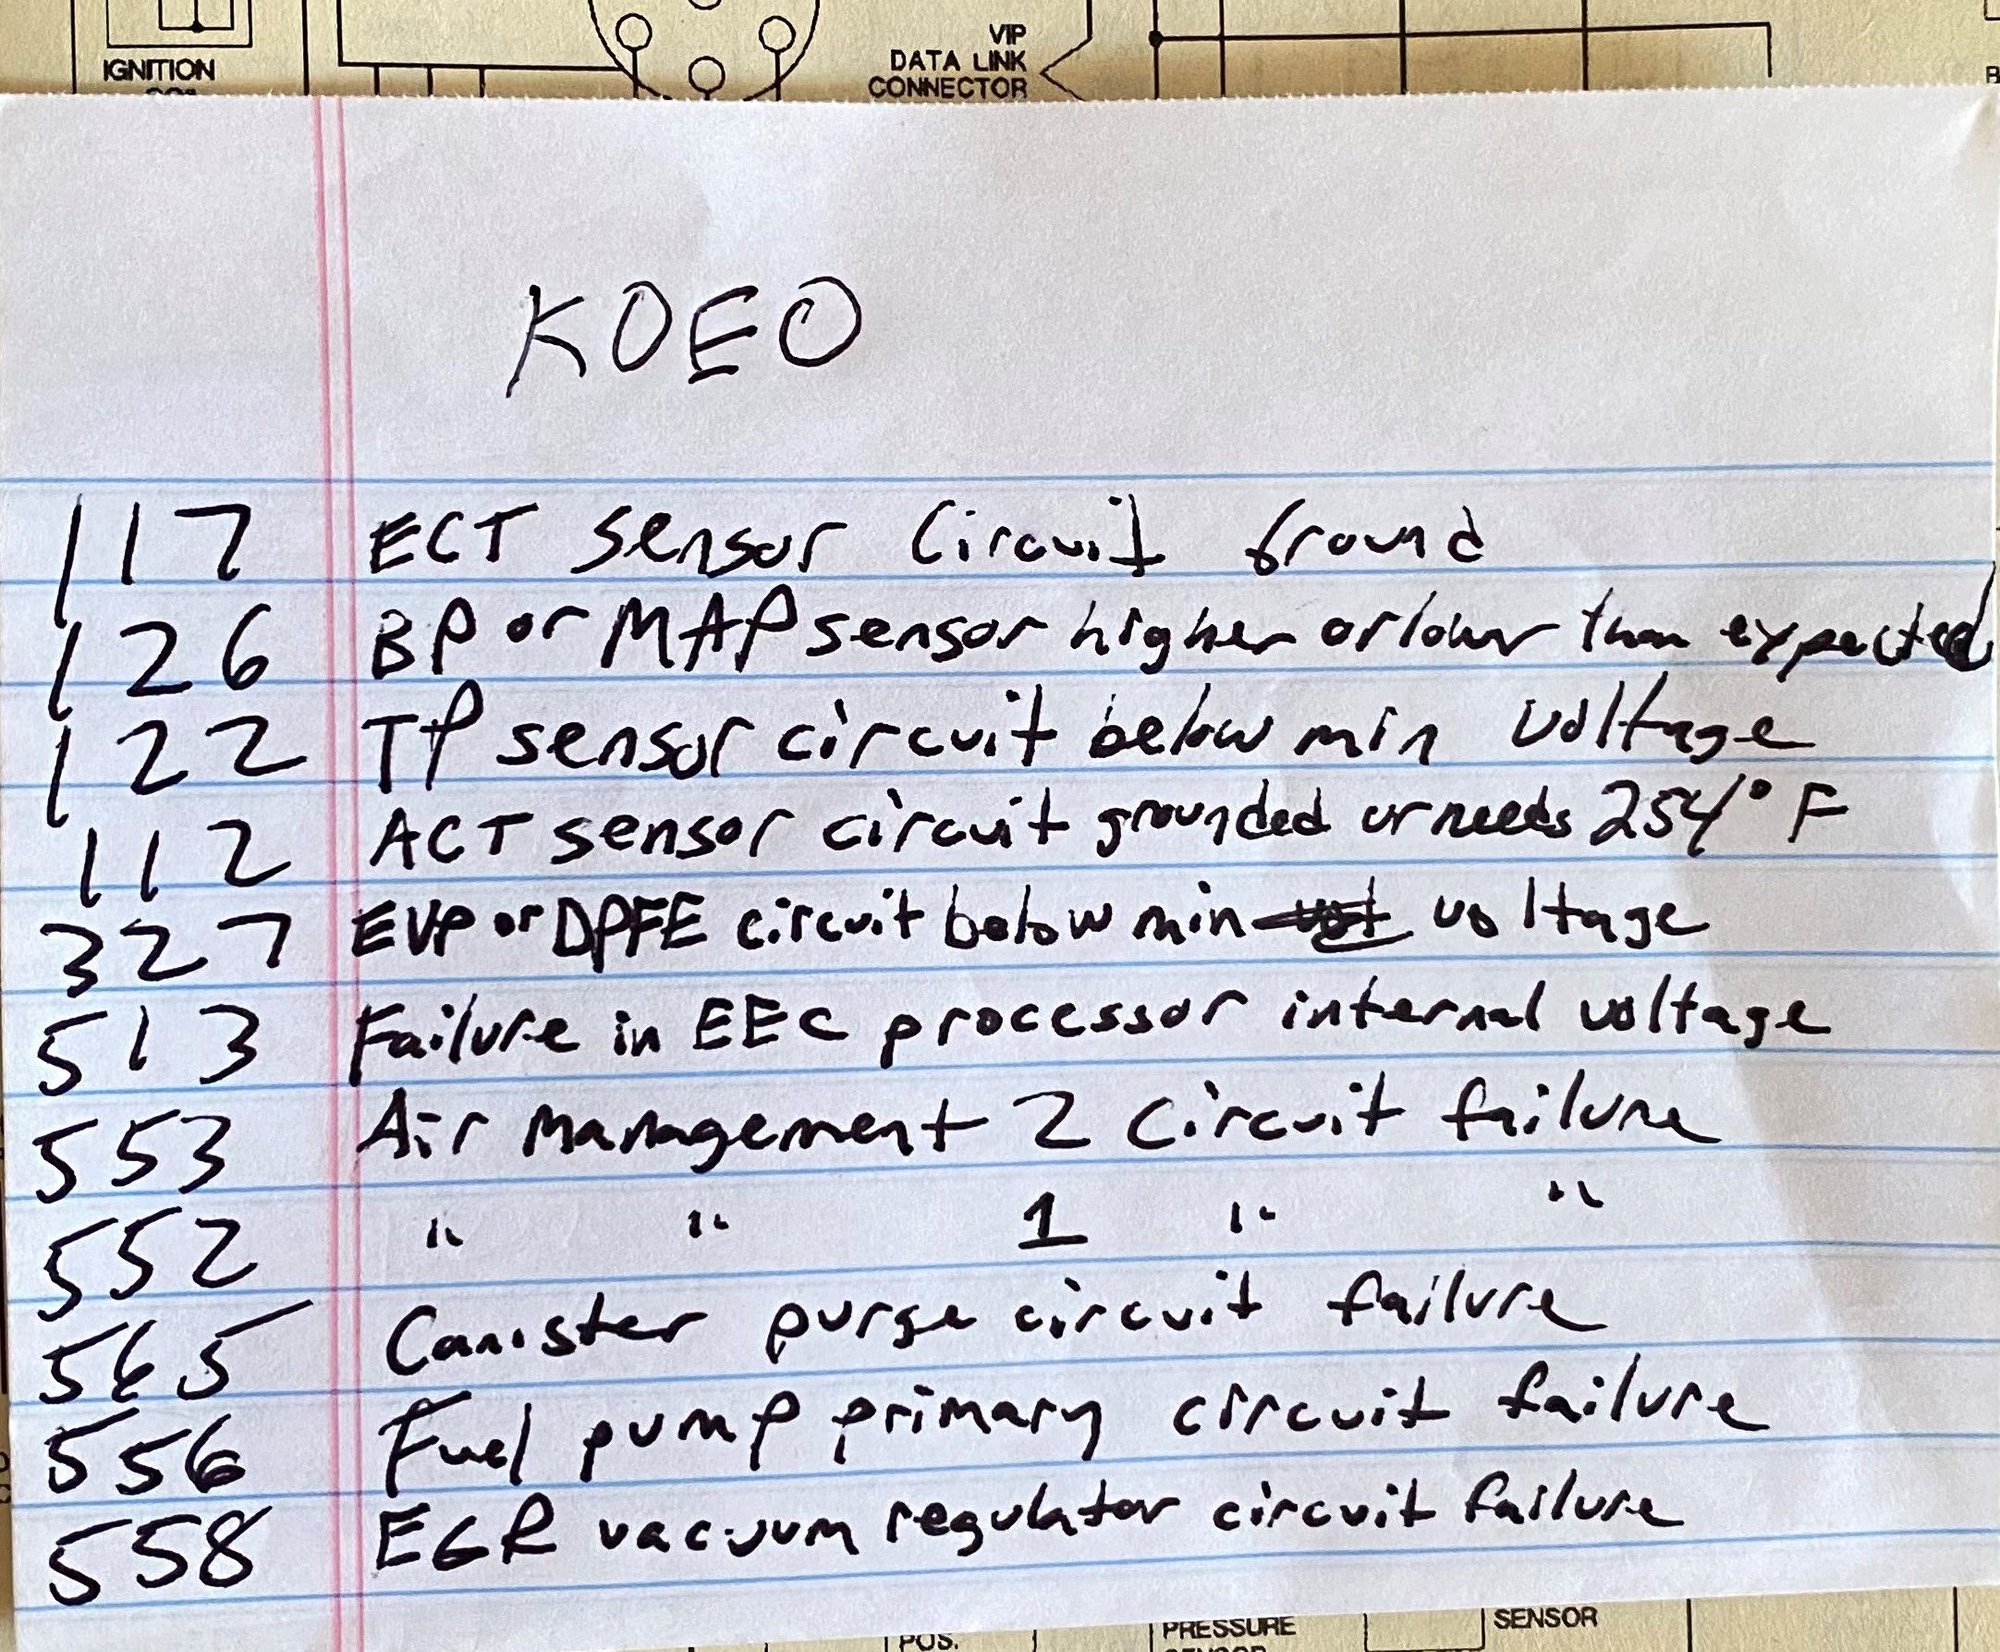 IGNITION
VIP
DATA LINK
CONNECTOR
KOEO
117 ECT sensor Circuit Ground
126 BP or MAP sensor higher or lower than expected
122 TP sensor circuit below min voltage
112 ACT sensor circuit grounded or needs 254° F
327 EVP or DPFE circuit below min voltage
513 Failure in EEC processor internal voltage
553 Air management 2 circuit failure
552 " " 1 " "
565 Canister purge circuit failure
556 Fuel pump primary circuit failure
558 EGR vacuum regulator circuit failure
POS.
PRESSURE
SENSOR